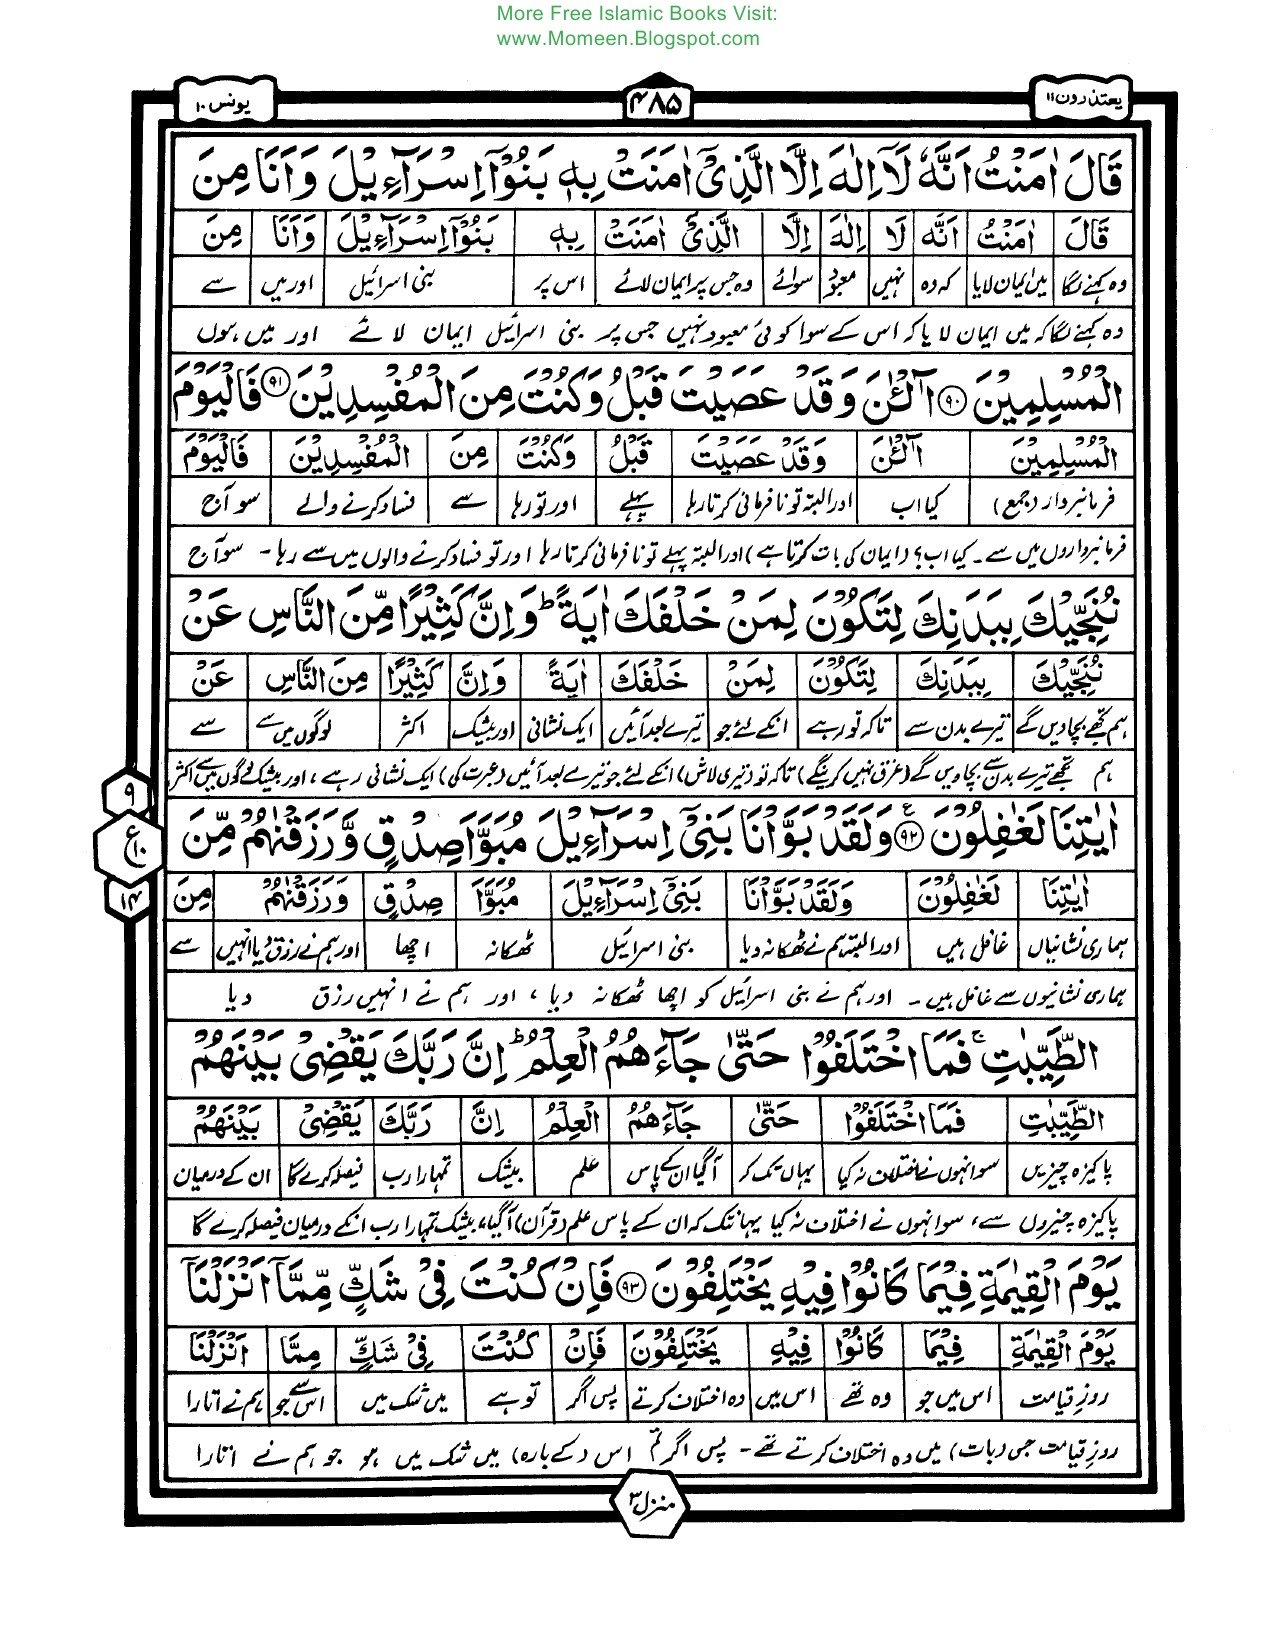 More Free Islamic Books Visit:
www.Momeen.Blogspot.com
یعتذرون ۱۱ ۴۸۵ یونس ۱۰
قَالَ اٰمَنْتُ اَنَّهٗ لَاۤ اِلٰهَ اِلَّا الَّذِیْۤ اٰمَنَتْ بِهٖ بَنُوْۤا اِسْرَآءِیْلَ وَ اَنَا مِنَ
قَالَ اٰمَنْتُ اَنَّهٗ لَاۤ اِلٰهَ اِلَّا الَّذِیْۤ اٰمَنَتْ بِهٖ بَنُوْۤا اِسْرَآءِیْلَ وَاَنَا مِنَ
وہ کہنے لگا میں ایمان لایا کہ وہ نہیں معبود سوائے وہ جس پر ایمان لائے اس پر بنی اسرائیل اور میں سے
وہ کہنے لگا کہ میں ایمان لایا کہ اس کے سوا کوئی معبود نہیں جس پر بنی اسرائیل ایمان لائے اور میں ہوں
الْمُسْلِمِیْنَ ﴿۹۰﴾ آٰلْـٰٔنَ وَ قَدْ عَصَیْتَ قَبْلُ وَكُنْتَ مِنَ الْمُفْسِدِیْنَ ﴿۹۱﴾ فَالْیَوْمَ
الْمُسْلِمِیْنَ آٰلْـٰٔنَ وَقَدْ عَصَیْتَ قَبْلُ وَكُنْتَ مِنَ الْمُفْسِدِیْنَ فَالْیَوْمَ
فرمانبردار (جمع) کیا اب اور البتہ تو نافرمانی کرتا رہا پہلے اور تو رہا سے فساد کرنے والے سو آج
فرمانبرداروں میں سے ۔ کیا اب؟ (ایمان کی بات کرتا ہے) اور البتہ پہلے تو نافرمانی کرتا رہا اور تو فساد کرنے والوں میں سے رہا ۔ سو آج
نُنَجِّیْكَ بِبَدَنِكَ لِتَكُوْنَ لِمَنْ خَلْفَكَ اٰیَةً ؕ وَ اِنَّ كَثِیْرًا مِّنَ النَّاسِ عَنْ
نُنَجِّیْكَ بِبَدَنِكَ لِتَكُوْنَ لِمَنْ خَلْفَكَ اٰیَةً وَاِنَّ كَثِیْرًا مِنَ النَّاسِ عَنْ
ہم تجھے بچادیں گے تیرے بدن سے تاکہ تو رہے انکے لئے جو تیرے بعد آئیں ایک نشانی اور بیشک اکثر لوگوں میں سے سے
ہم تجھے تیرے بدن سے بچادیں گے (غرق نہیں کرینگے) تاکہ تو (تیری لاش) انکے لئے جو تیرے بعد آئیں (عبرت کی) ایک نشانی رہے، اور بیشک لوگوں میں سے اکثر
اٰیٰتِنَا لَغٰفِلُوْنَ ﴿۹۲﴾ ع وَلَقَدْ بَوَّاْنَا بَنِیْۤ اِسْرَآءِیْلَ مُبَوَّاَ صِدْقٍ وَّ رَزَقْنٰهُمْ مِّنَ
۹
ع ۱۰
۱۴
اٰیٰتِنَا لَغٰفِلُوْنَ وَلَقَدْ بَوَّاْنَا بَنِیْۤ اِسْرَآءِیْلَ مُبَوَّاَ صِدْقٍ وَرَزَقْنٰهُمْ مِنَ
ہماری نشانیاں غافل ہیں اور البتہ ہم نے ٹھکانہ دیا بنی اسرائیل ٹھکانہ اچھا اور ہم نے رزق دیا انہیں سے
ہماری نشانیوں سے غافل ہیں ۔ اور ہم نے بنی اسرائیل کو اچھا ٹھکانہ دیا، اور ہم نے انہیں رزق دیا
الطَّیِّبٰتِ ۚ فَمَا اخْتَلَفُوْا حَتّٰی جَآءَهُمُ الْعِلْمُ ؕ اِنَّ رَبَّكَ یَقْضِیْ بَیْنَهُمْ
الطَّیِّبٰتِ فَمَا اخْتَلَفُوْا حَتّٰی جَآءَهُمُ الْعِلْمُ اِنَّ رَبَّكَ یَقْضِیْ بَیْنَهُمْ
پاکیزہ چیزیں سو انہوں نے اختلاف نہ کیا یہاں تک کہ آگیا ان کے پاس علم بیشک تمہارا رب فیصلہ کرے گا ان کے درمیان
پاکیزہ چیزوں سے، سو انہوں نے اختلاف نہ کیا یہانتک کہ ان کے پاس علم (قرآن) آگیا، بیشک تمہارا رب انکے درمیان فیصلہ کرے گا
یَوْمَ الْقِیٰمَةِ فِیْمَا كَانُوْا فِیْهِ یَخْتَلِفُوْنَ ﴿۹۳﴾ فَاِنْ كُنْتَ فِیْ شَكٍّ مِّمَّاۤ اَنْزَلْنَاۤ
یَوْمَ الْقِیٰمَةِ فِیْمَا كَانُوْا فِیْهِ یَخْتَلِفُوْنَ فَاِنْ كُنْتَ فِیْ شَكٍّ مِمَّا اَنْزَلْنَا
روزِ قیامت اس میں جو وہ تھے اس میں وہ اختلاف کرتے پس اگر تو ہے میں شک میں اس سے جو ہم نے اتارا
روزِ قیامت جس (بات) میں وہ اختلاف کرتے تھے ۔ پس اگر تم اس (کے بارہ) میں شک میں ہو جو ہم نے اتارا
منزل ۳